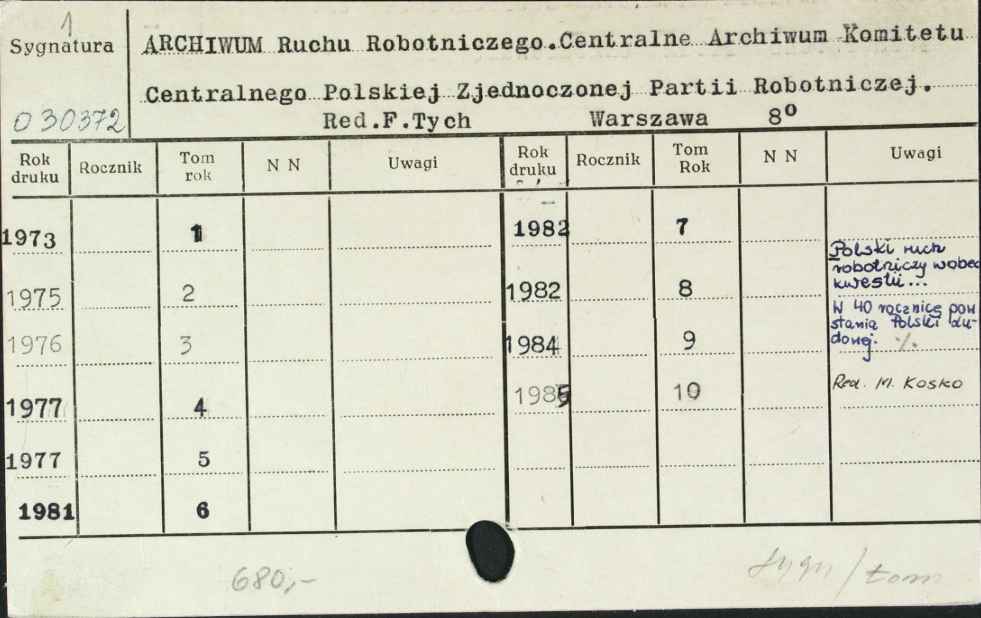 1
Sygnatura
030372
ARCHIWUM Ruchu Robotniczego.Centralne Archiwum Komitetu
Centralnego Polskiej Zjednoczonej Partii Robotniczej.
Red.F.Tych Warszawa 8°
Rok druku Rocznik Tom rok N N Uwagi Rok druku Rocznik Tom Rok N N Uwagi
1973 1 1982 7
1975 2 1982 8 Polski ruch robotniczy wobec kwestii...
1976 3 1984 9 W 40 rocznicę pow stania Polski Lu- dowej. ·/.
1977 4 1985 10 Red. M. Kosko
1977 5
1981 6
680,- sygn/tom